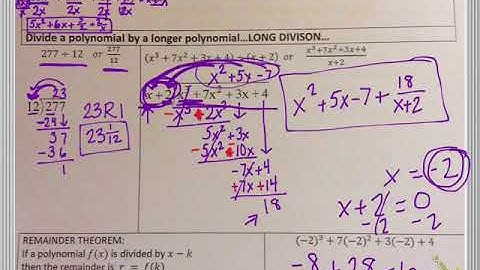 2x 2x 2x
5x² + 6x + 7/2 + 5/x
Divide a polynomial by a longer polynomial…LONG DIVISON…
277 ÷ 12 or 277/12
(x³ + 7x² + 3x + 4) ÷ (x + 2) or x³+7x²+3x+4/x+2
x² + 5x - 7
23
12 277
-24
37
-36
1
23 R1
23 1/12
x + 2 x³ + 7x² + 3x + 4
- x³ + 2x²
5x² + 3x
- 5x² + 10x
-7x + 4
+ 7x + 14
18
x² + 5x - 7 + 18/x+2
x = -2
x + 2 = 0
-2 -2
REMAINDER THEOREM:
If a polynomial f(x) is divided by x − k
then the remainder is r = f(k)
(−2)³ + 7(−2)² + 3(−2) + 4
-8 + 28